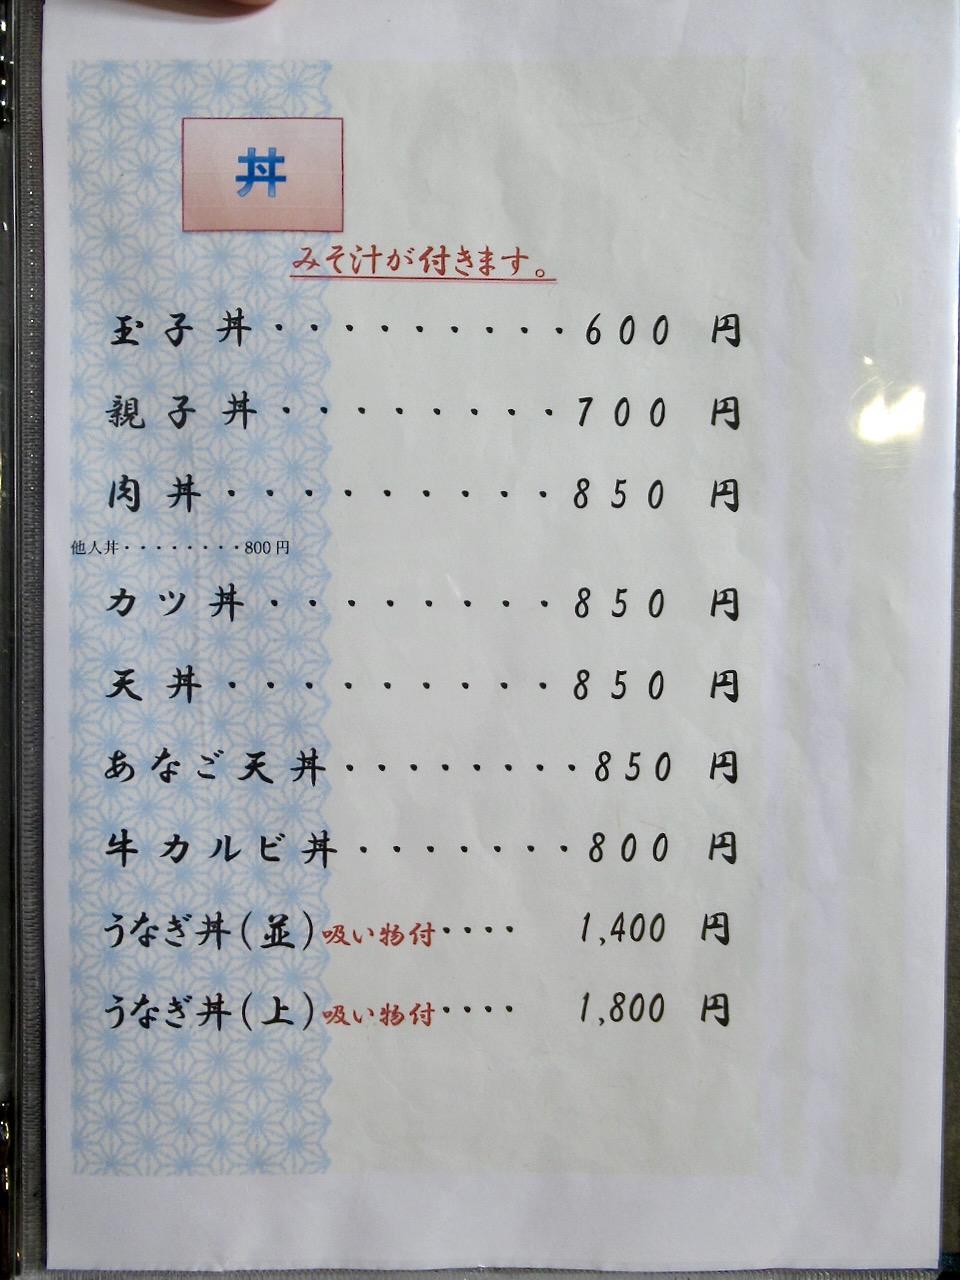 丼
みそ汁が付きます。
玉子丼・・・・・・・・・600 円
親子丼・・・・・・・・・700 円
肉丼・・・・・・・・・・850 円
他人丼・・・・・・・・800 円
カツ丼・・・・・・・・・850 円
天丼・・・・・・・・・・850 円
あなご天丼・・・・・・・・850 円
牛カルビ丼・・・・・・・800 円
うなぎ丼(並)吸い物付・・・・ 1,400 円
うなぎ丼(上)吸い物付・・・・ 1,800 円